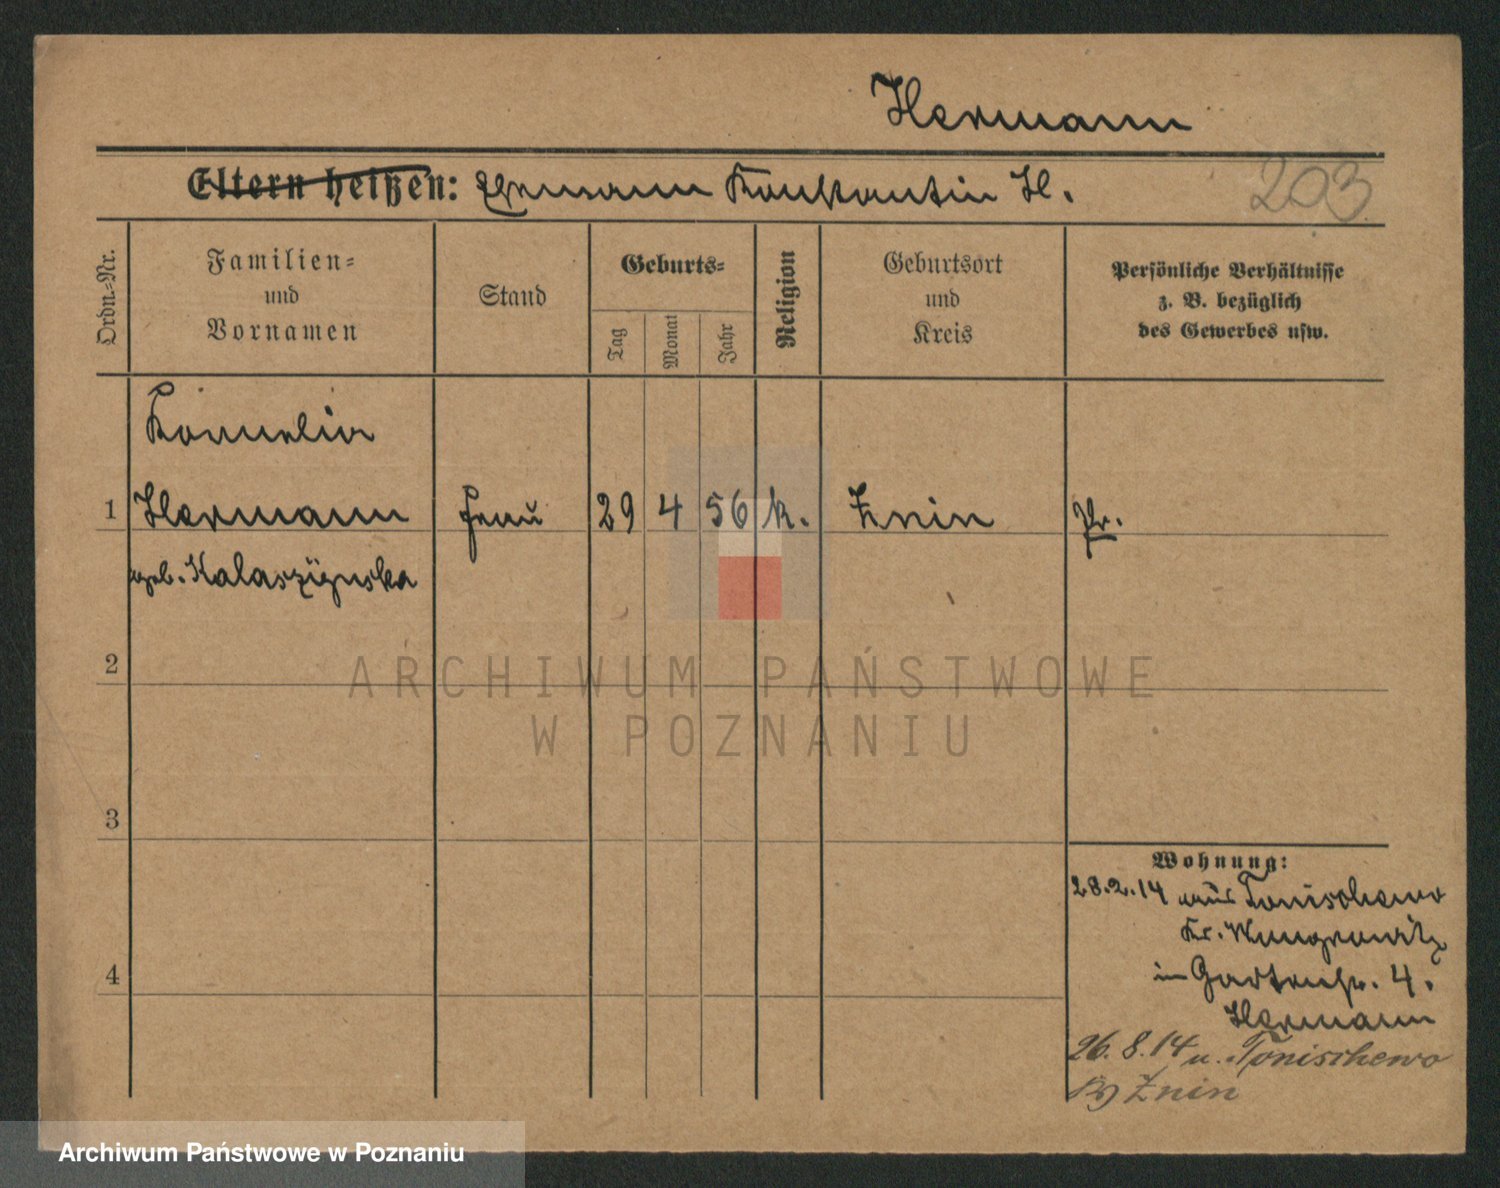 Hermann
Eltern heißen: Ehemann Konstantin H.
203
Ordn.=Nr.
Familien=
und
Vornamen
Stand
Geburts=
Tag
Monat
Jahr
Religion
Geburtsort
und
Kreis
Persönliche Verhältnisse
z. B. bezüglich
des Gewerbes usw.
Kornelia
1 Hermann Frau 29 4 56 k. Znin Pr.
geb. Kalaszÿnska
2
3
4
Wohnung:
28.2.14 aus Tonischewo
Kr. Wongrowitz
in Gartenstr. 4.
Hermann
26. 8. 14 n. Tonischewo
Znin
ARCHIWUM PAŃSTWOWE
W POZNANIU
Archiwum Państwowe w Poznaniu